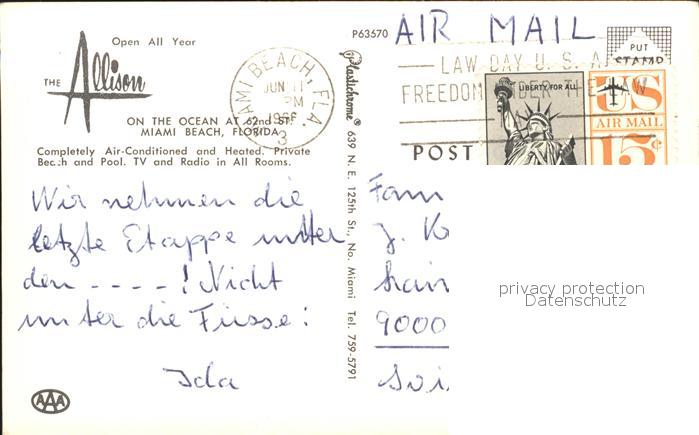 Open All Year
THE Allison
ON THE OCEAN AT 62nd ST.
MIAMI BEACH, FLORIDA
Completely Air-Conditioned and Heated. Private
Beach and Pool. TV and Radio in All Rooms.
Wir nehmen die
letzte Etappe unter
den - - - - ! Nicht
unter die Füsse!
Ida
AAA
Plastichrome ® 639 N. E. 125th St., No. Miami Tel. 759-5791
P63570
AIR MAIL
PUT
STAMP
MIAMI BEACH, FLA.
JUN 11
PM
3
LAW DAY U. S. A.
FREEDOM UNDER THE LAW
LIBERTY FOR ALL
US
AIR MAIL
15¢
POST
Fam
J. K
9000
privacy protection
Datenschutz